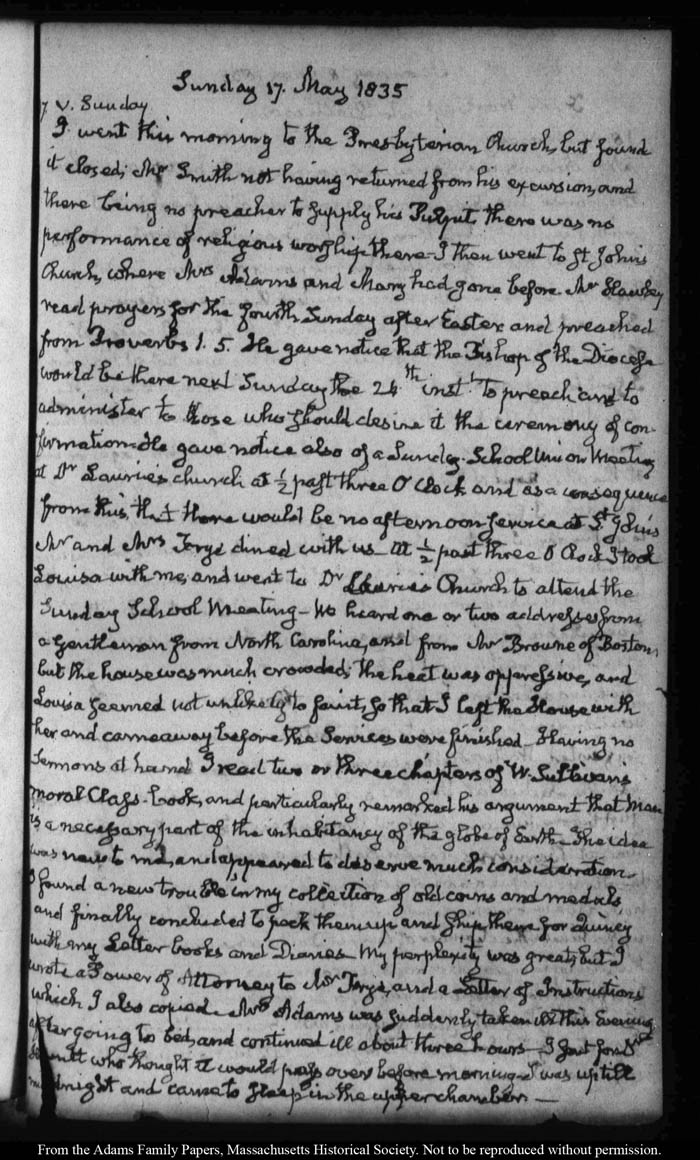 Sunday 17. May 1835
V. Sunday
I went this morning to the Presbyterian Church, but found
it closed; Mr Smith not having returned from his excursion, and
there being no preacher to supply his Pulpit, there was no
performance of religious worship there. I then went to St John's
Church, where Mrs Adams and Mary had gone before. Mr Hawley
read prayers for the fourth Sunday after Easter and preached
from Proverbs 1. 5. He gave notice that the Bishop of the Diocese
would be there next Sunday the 24th inst. to preach and to
administer to those who should desire it the ceremony of con-
firmation. He gave notice also of a Sunday-School Union Meeting
at Dr Laurie's church at ½ past three O'Clock and as a consequence
from this, that there would be no afternoon service at St John's
Mr and Mrs Frye dined with us. At ½ past three O Clock I took
Louisa with me, and went to Dr Laurie's Church to attend the
Sunday School Meeting. We heard one or two addresses from
a Gentleman from North Carolina, and from Mr Browne of Boston,
but the house was much crowded; the heat was oppressive, and
Louisa seemed not unlikely to faint, so that I left the House with
her and came away before the Services were finished. Having no
Sermons at hand I read two or three chapters of W. Sullivan's
moral Class-book, and particularly remarked his argument that Man
is a necessary part of the inhabitancy of the globe of Earth. The idea
was new to me, and appeared to deserve much consideration.
I found a new trouble in my collection of old coins and medals,
and finally concluded to pack them up and ship them for Quincy
with my Letter books and Diaries. My perplexity was great, but I
wrote a Power of Attorney to Mr Frye, and a Letter of Instructions
which I also copied. Mrs Adams was suddenly taken ill this Evening
after going to bed, and continued ill about three hours. I sent for Dr
who thought it would pass over before morning. I was up till
midnight and came to sleep in the upper chamber. —
From the Adams Family Papers, Massachusetts Historical Society. Not to be reproduced without permission.